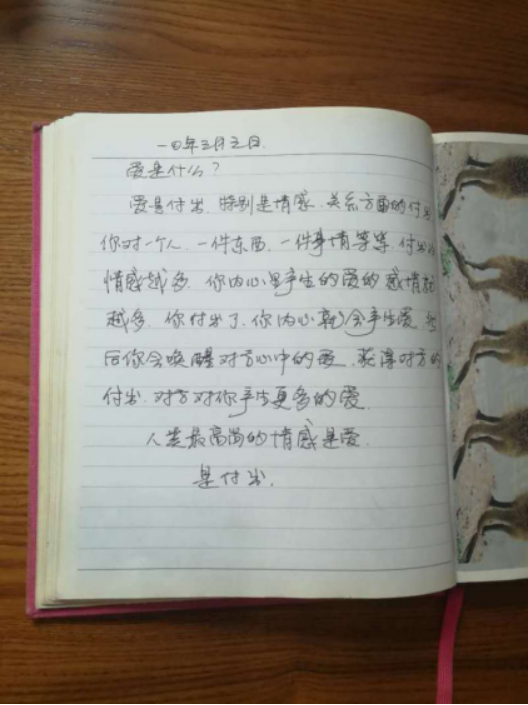 一〇年三月七日.
爱是什么?
爱是付出.特别是情感.关系方面的付出
你对一个人.一件东西.一件事情等等.付出的
情感越多.你内心里产生的爱的感情就
越多.你付出了.你内心就会产生爱.
后你会唤醒对方心中的爱.获得对方的
付出.对方对你产生更多的爱.
人类最高尚的情感是爱.
是付出.